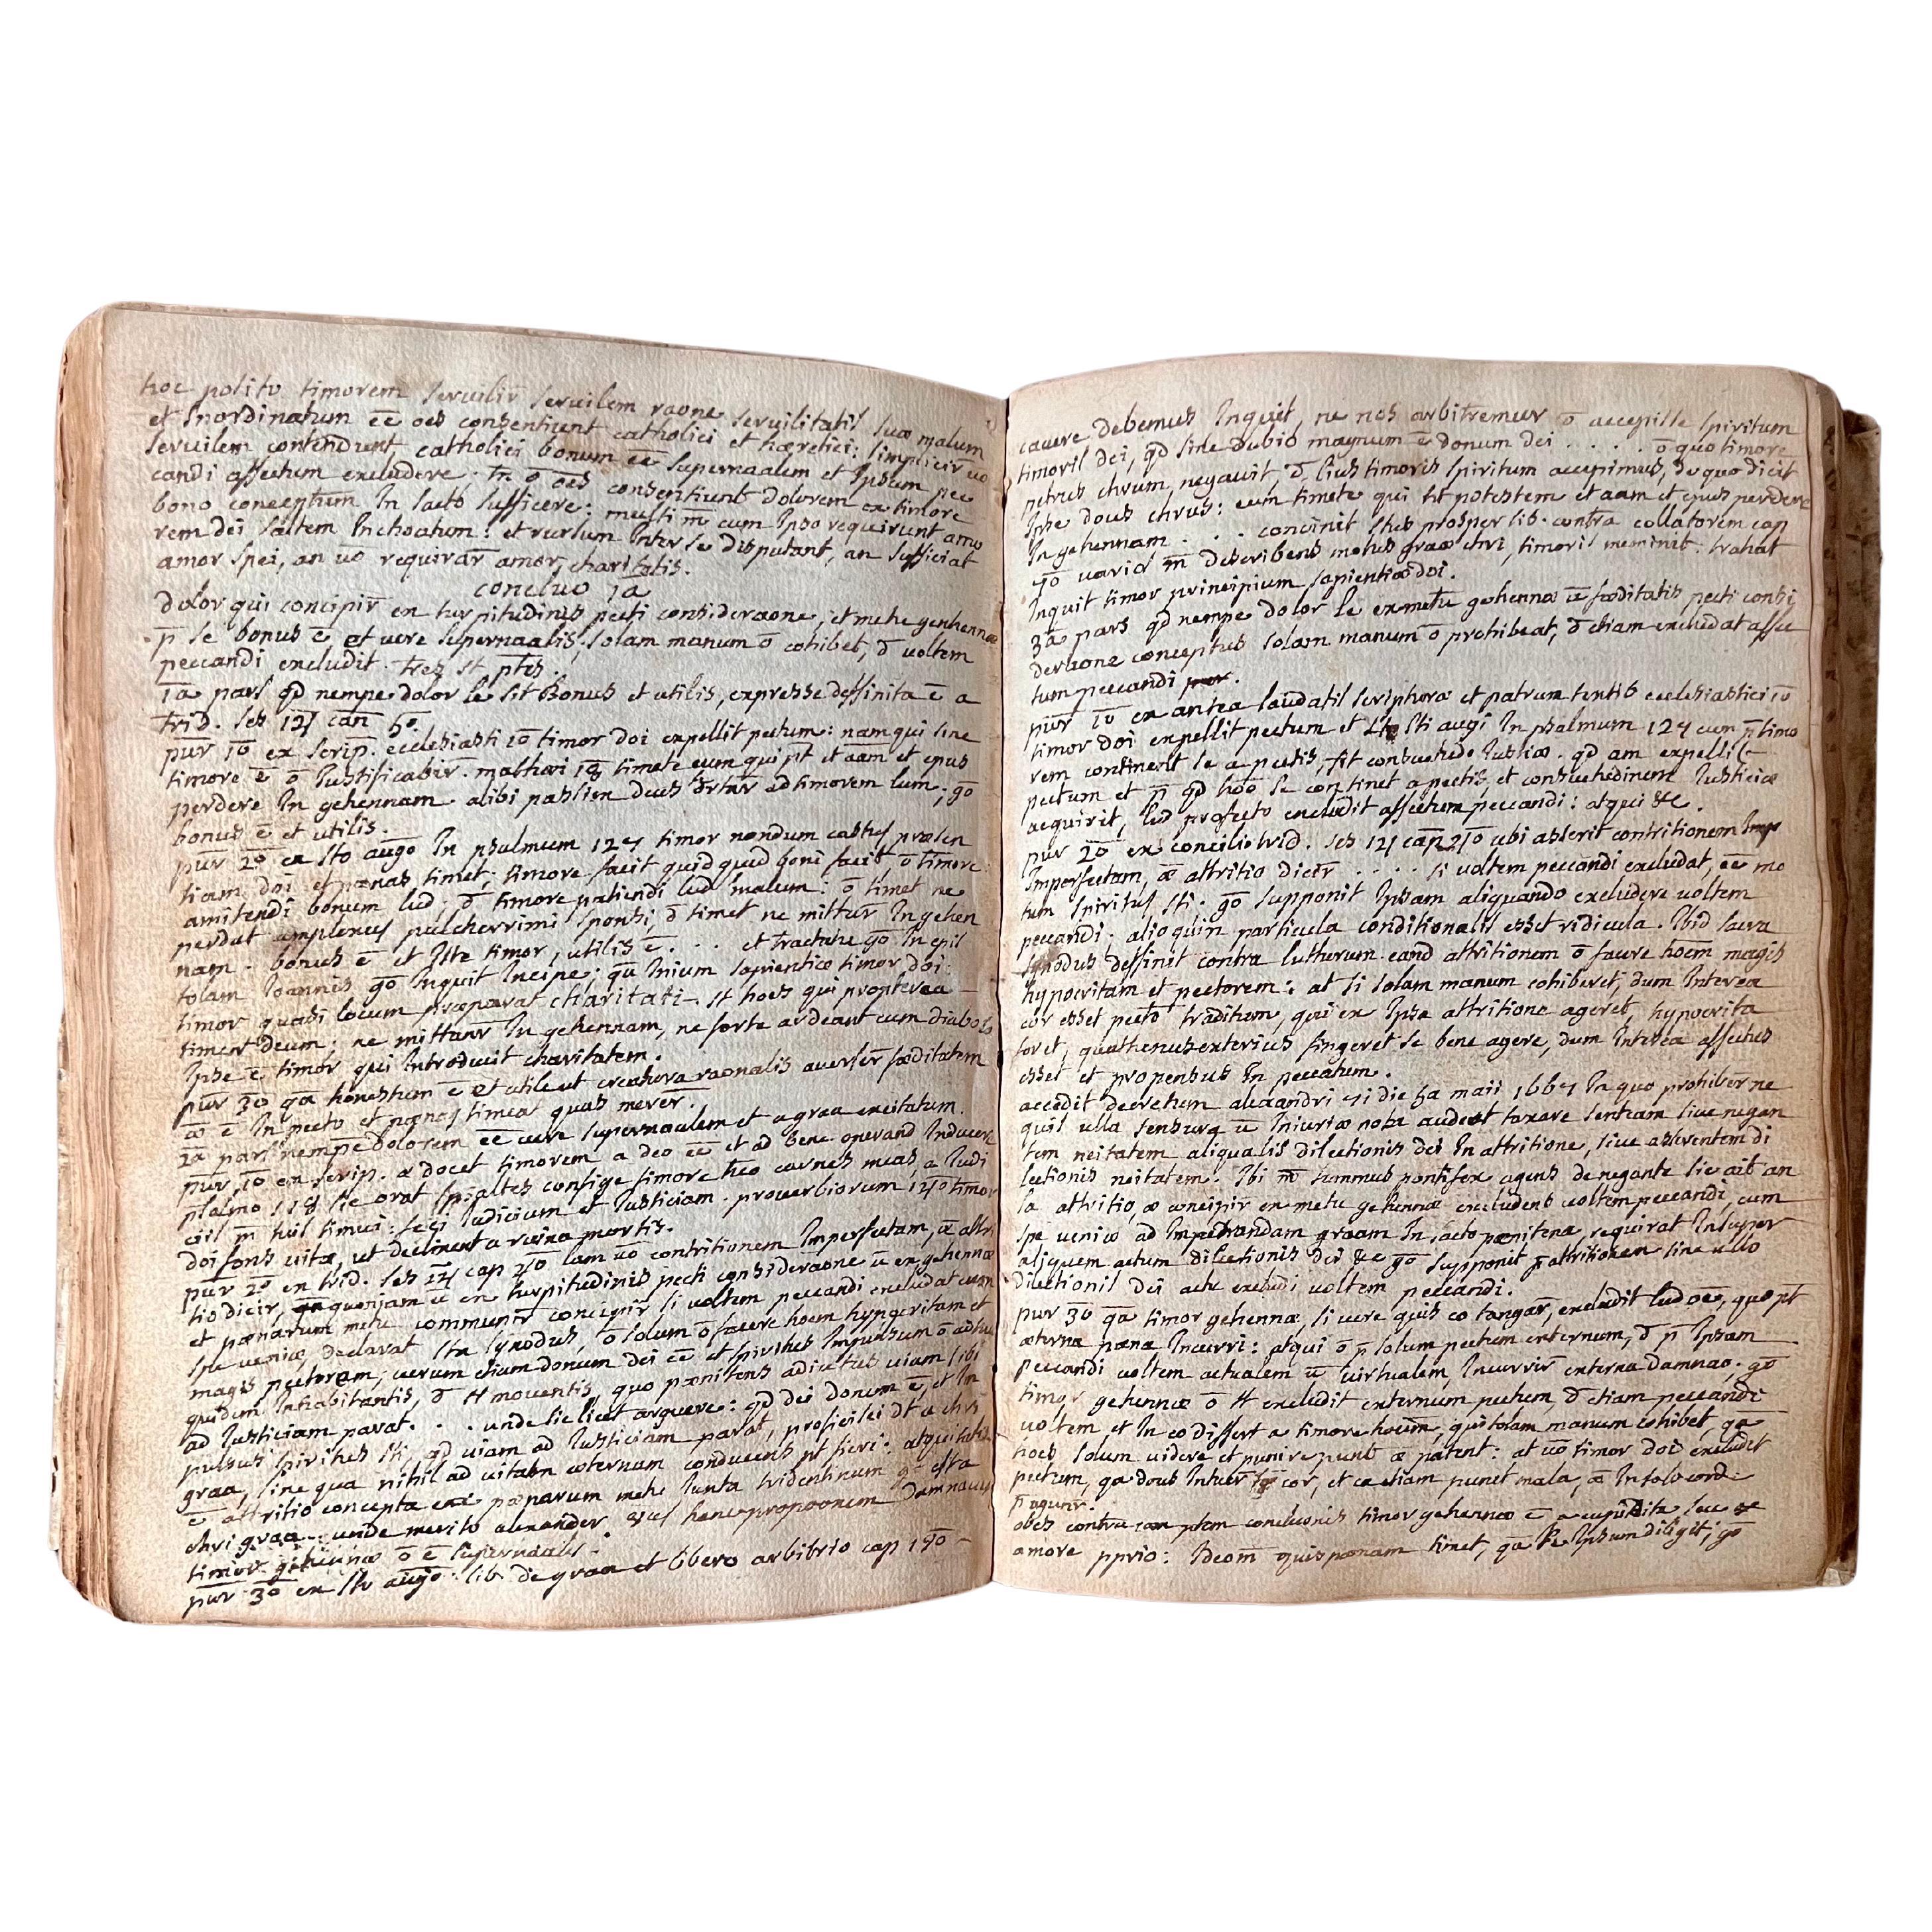 hoc posito timorem seruilir seruilem raone seruilitatis suæ malum
et Inordinatum ēē oēs consentiunt catholici et hæretici: simplicir uo
seruilem contendunt catholici bonum ēē supernaalem et Ipsum pec
candi affectum excludere; tn ō oēs consentiunt dolorem ex timore
bono conceptum In sacto sufficere: multi m̄ cum Ipso requirunt amo
rem dei saltem Inchoatum: et rursum Inter se disputant, an sufficiat
amor spei, an uō requirār amor charitatis.
concluo 1a
Dolor qui concipir̄ en turpitudinis pecti consideraone, et metu gehennæ
p̄ se bonus ē et uere supernaalis; solam manum ō cohibet, đ uoltem
peccandi excludit. tres st ptes.
1a pars qđ nempe dolor le sit Bonus et utilis, expresse deffinita ē a
trid. ses 14 can 5o.
pur 1o ex scrip. ecclesiasti 1o timor doi expellit pectum: nam qui sine
timore ē ō Iustificabir̄. mathæi 18 timete eum qui pt et āam et cpus
perdere In gehennam. alibi passim Deus ad timorem sum; gō
bonus ē et utilis.
pur 2o ex sto augo In psalmum 127 timor nondum castus præsen
tiam doi et pænas timet; timore facit quid quid boni facit ō timore
amitendi bonum lud; đ timore patiendi lud malum: ō timet ne
perdat amplexus pulcherrimi sponsi, đ timet ne mittur̄ In gehen
nam. bonus ē et Iste timor, utilis ē. . . et tractatu 9o In epis
tolam Ioannis gō Inquit Incipe; qū Inium sapientiæ timor doi:
timor quasi locum præparat charitati. st hoēs qui propterea
timent deum: ne mittanr̄ In gehennam, ne forte ardeant cum diabolo
Ipse ē timor qui Introducit charitatem.
pur 3o qa honestum ē et utile ut creatura raonalis aversēr fæditatem
ē In pecto et pænas timeat quas merer̄.
2a pars nempe Dolorem ēē uere supernaalem et a graa excitatum.
pur 1o ex scrip. docet timorem a deo ēē et ad bene operand Inducere
psalmo 118 sic orat psaltes confige timore tuo carnes meas, a Iudi
ciis m̄ tuis timui: feci Iudicium et Iusticiam. proverbiorum 14o timor
doi fons uitæ, ut declinent a ruina mortis.
pur 2o en trid. ses 14 cap 4o lam uō contritionem Imperfectam, æ attri
tio dicir, quonjam ū en turpitudinis pecti consideraone ū en gehennæ
et pænarum metu communir̄ concipir̄ si uoltem peccandi excludat cum
spe ueniæ, declarat sta synodus, ō solum ō facere hoem hypocritam et
magis pectorem, uerum etiam donum dei ēē et spiritus Impulsum ō adhuc
quidem Inhabitantis, đ tt mouentis, quo pænitens adiutus uiam sibi
ad Iusticiam parat. . . unde sic licet arguere: qđ dei donum ē, et Im
pulsus spiritus sti, qđ uiam ad Iusticiam parat, proficisci dt a chri
graa, sine qua nihil ad uitam æternam conducens pt fieri: atqui talis
ē attritio concepta pænarum metu Iuxta tridentinum gō ēst a
chri graa. unde merito alexander hanc propoonem Damnauit
timor gehennæ ō ē supernaalis.
pur 3o ex sto augo. lib. de graa et libero arbitrio cap 18o
cauere debemus Inquit, ne nos arbitremur ō accepisse spiritum
timoris dei, qđ sine dubio magnum ē donum dei . . . . ō quo timore
petrus chrum negauit, đ Eius timoris spiritum accepimus, de quo dicit
Ipse dous chrus: eum timete qui ht potestem et āam et cpus perdere
In gehennam . . . concinit stus prosper lib. contra collatorem cap
7o uarios m̄ describens motus graæ chri, timoris meminit: trahat
Inquit timor principium sapientiæ doi.
3a pars qđ nempe dolor le ex metu gehennæ ū fæditatis pecti consi
deraone conceptus solam manum ō prohibeat, đ etiam excludat affec
tum peccandi.
pur 1o ex antea laudatis scripturæ et patrum tentis ecclesiastici 1o
timor doi expellit pectum et Sti augi In psalmum 127 cum p̄ timo
rem continent se a pectis, fit consuetudo Iustiæ. qđ am expellit
pectum et p̄ qđ hōo se continet a pectis, et consuetudinem Iusticiæ
acquirit, lud profecto excludit affectum peccandi: atqui &c.
pur 2o ex concilio trid. ses 14 cap 4o ubi asserit contritionem Imp
Imperfectam, æ attritio dicir̄ . . . . si uoltem peccandi excludat, ēē mo
tum spiritus sti. gō supponit Ipsam aliquando excludere uoltem
peccandi; alioquin particula conditionalis esset ridicula. Ibid sacra
synodus deffinit contra lutherum eand attritionem ō facere hoem magis
hypocritam et pectorem: at si solam manum cohiberet, dum Interea
cor esset pecto traditum, qui ex Ipsa attritione ageret, hypocrita
foret, quathenus exterius fingeret se bene agere, dum Interea affectus
esset et propensus In peccatum.
accedit decretum alexandri 7i die 5a maii 1667 In quo prohiber̄ ne
quis ulla censura ū Iniuriæ nota audeat taxare sentiam siue negan
tem neitatem aliqualis dilectionis dei In attritione, siue asserentem di
lectionis neitatem. Ibi m̄ summus pontifex agens de negante sic ait an
la attritio, æ concipir̄ ex metu gehennæ excludens uoltem peccandi, cum
spe ueniæ ad Impetrandam graam In sacto pænitenæ, requirat Insuper
aliquem actum dilectionis dei &c gō supponit p̄ attritionem sine ullo
dilectionis dei actu excludi uoltem peccandi.
pur 3o qa timor gehennæ, si uere quis eo tangar̄, excludit lud oē, quo pt
æterna pæna Incurri: atqui ō p̄ solum pectum externum, đ p̄ Ipsam
peccandi uoltem actualem ū uirtualem, Incurrir̄ externa damnao. gō
timor gehennæ ō tt excludit externum pectum đ etiam peccandi
uoltem, et In eo differt a timore hoium, qui solam manum cohibet, qa
hoēs solum uidere et punire punt æ patent: at uō timor doi excludit
pectum, qa dous Intuer̄ cor, et ea etiam punit mala, æ In solo corde
p̄agunr̄.
obes contra ptem conclusionis timor gehennæ ē a cupiditæ seu
amore pprio: Ideom̄ quis pænam timet, qa se Ipsum diligit; gō